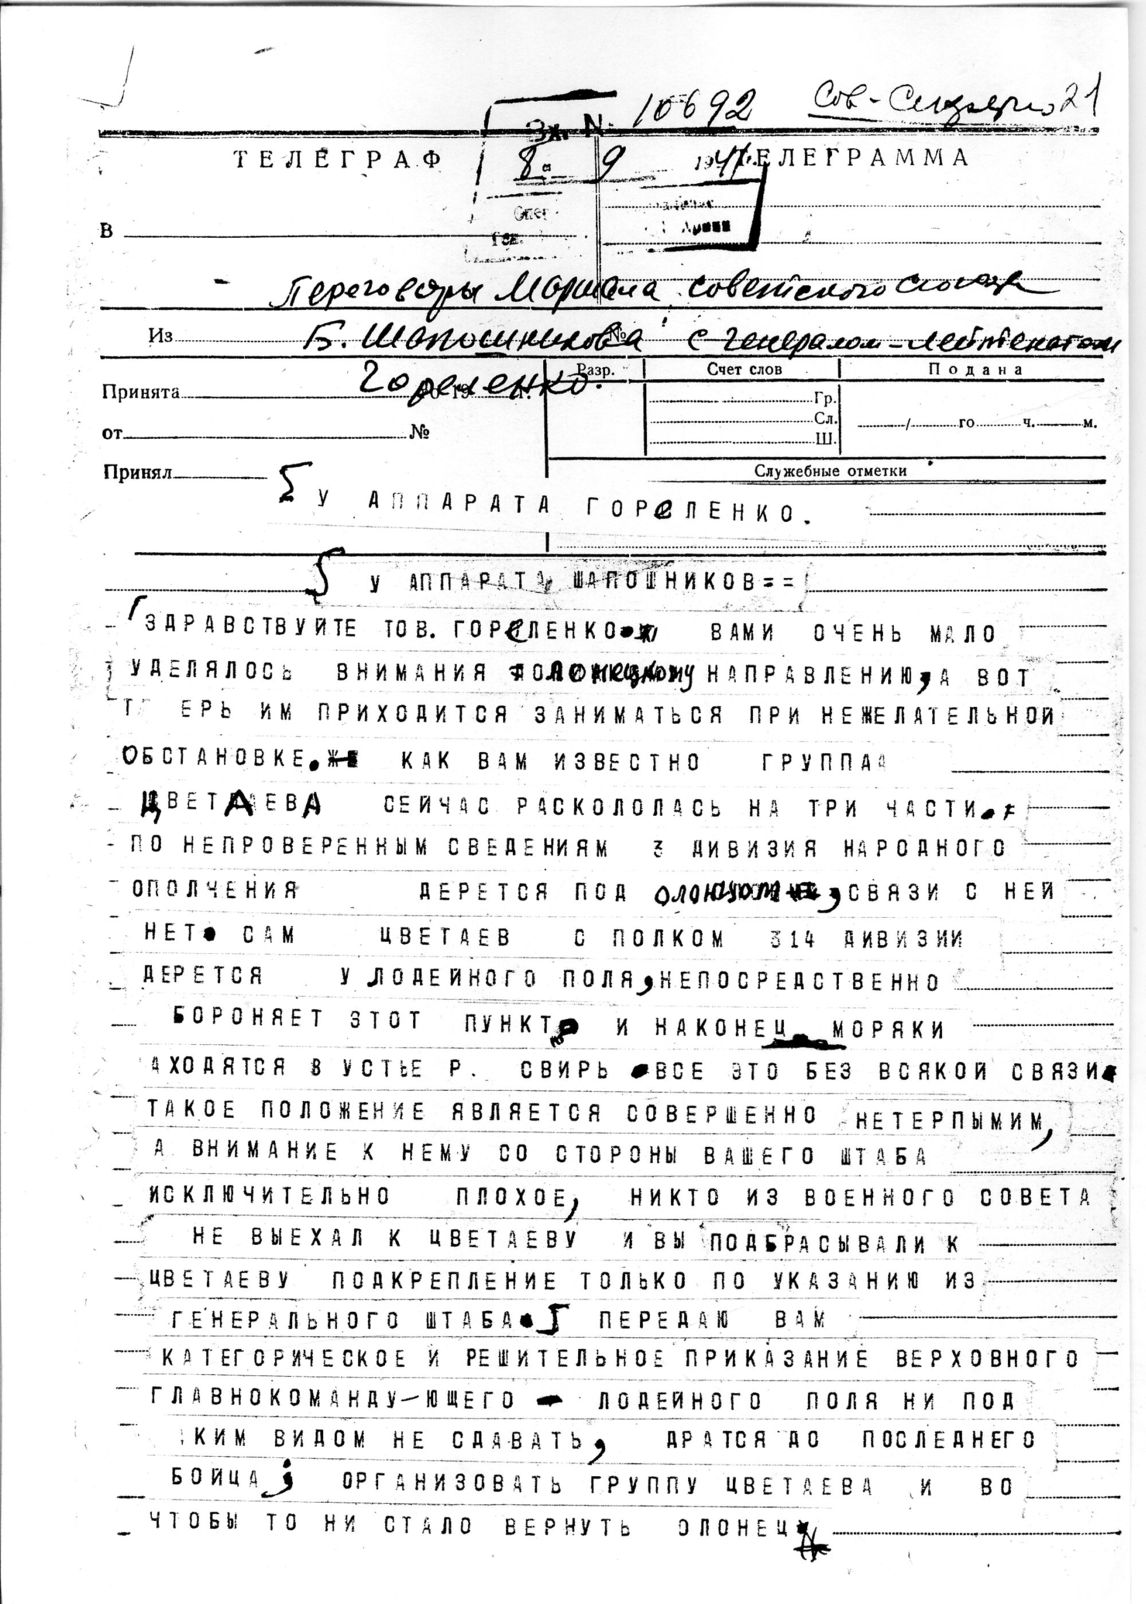 Сов-Секретно 21
Вх. N. 10692
8 9 1941
ТЕЛЕГРАФ ТЕЛЕГРАММА
В
Переговоры Маршала Советского Союза
Из Б. Шапошникова № с генералом-лейтенантом
Гореленко.
Разр. Счет слов Подана
Принята 19 г.
Гр.
Сл. / го ч. м.
от №
Ш.
Принял Служебные отметки
У АППАРАТА ГОРЕЛЕНКО.
У АППАРАТА ШАПОШНИКОВ==
ЗДРАВСТВУЙТЕ ТОВ. ГОРЕЛЕНКО. ВАМИ ОЧЕНЬ МАЛО
УДЕЛЯЛОСЬ ВНИМАНИЯ ОЛОНЕЦКОМУ НАПРАВЛЕНИЮ, А ВОТ
Т ЕРЬ ИМ ПРИХОДИТСЯ ЗАНИМАТЬСЯ ПРИ НЕЖЕЛАТЕЛЬНОЙ
ОБСТАНОВКЕ. КАК ВАМ ИЗВЕСТНО ГРУППА
ЦВЕТАЕВА СЕЙЧАС РАСКОЛОЛАСЬ НА ТРИ ЧАСТИ.
ПО НЕПРОВЕРЕННЫМ СВЕДЕНИЯМ 3 ДИВИЗИЯ НАРОДНОГО
ОПОЛЧЕНИЯ ДЕРЕТСЯ ПОД ОЛОНЦОМ, СВЯЗИ С НЕЙ
НЕТ. САМ ЦВЕТАЕВ С ПОЛКОМ 314 ДИВИЗИИ
ДЕРЕТСЯ У ЛОДЕЙНОГО ПОЛЯ, НЕПОСРЕДСТВЕННО
БОРОНЯЕТ ЭТОТ ПУНКТ И НАКОНЕЦ МОРЯКИ
АХОДЯТСЯ В УСТЬЕ Р. СВИРЬ. ВСЕ ЭТО БЕЗ ВСЯКОЙ СВЯЗИ.
ТАКОЕ ПОЛОЖЕНИЕ ЯВЛЯЕТСЯ СОВЕРШЕННО НЕТЕРПЫМИМ,
А ВНИМАНИЕ К НЕМУ СО СТОРОНЫ ВАШЕГО ШТАБА
ИСКЛЮЧИТЕЛЬНО ПЛОХОЕ, НИКТО ИЗ ВОЕННОГО СОВЕТА
НЕ ВЫЕХАЛ К ЦВЕТАЕВУ И ВЫ ПОДБРАСЫВАЛИ К
ЦВЕТАЕВУ ПОДКРЕПЛЕНИЕ ТОЛЬКО ПО УКАЗАНИЮ ИЗ
ГЕНЕРАЛЬНОГО ШТАБА. ПЕРЕДАЮ ВАМ
КАТЕГОРИЧЕСКОЕ И РЕШИТЕЛЬНОЕ ПРИКАЗАНИЕ ВЕРХОВНОГО
ГЛАВНОКОМАНДУ-ЮЩЕГО - ЛОДЕЙНОГО ПОЛЯ НИ ПОД
КИМ ВИДОМ НЕ СДАВАТЬ, ДРАТСЯ ДО ПОСЛЕДНЕГО
БОЙЦА; ОРГАНИЗОВАТЬ ГРУППУ ЦВЕТАЕВА И ВО
ЧТОБЫ ТО НИ СТАЛО ВЕРНУТЬ ОЛОНЕЦ